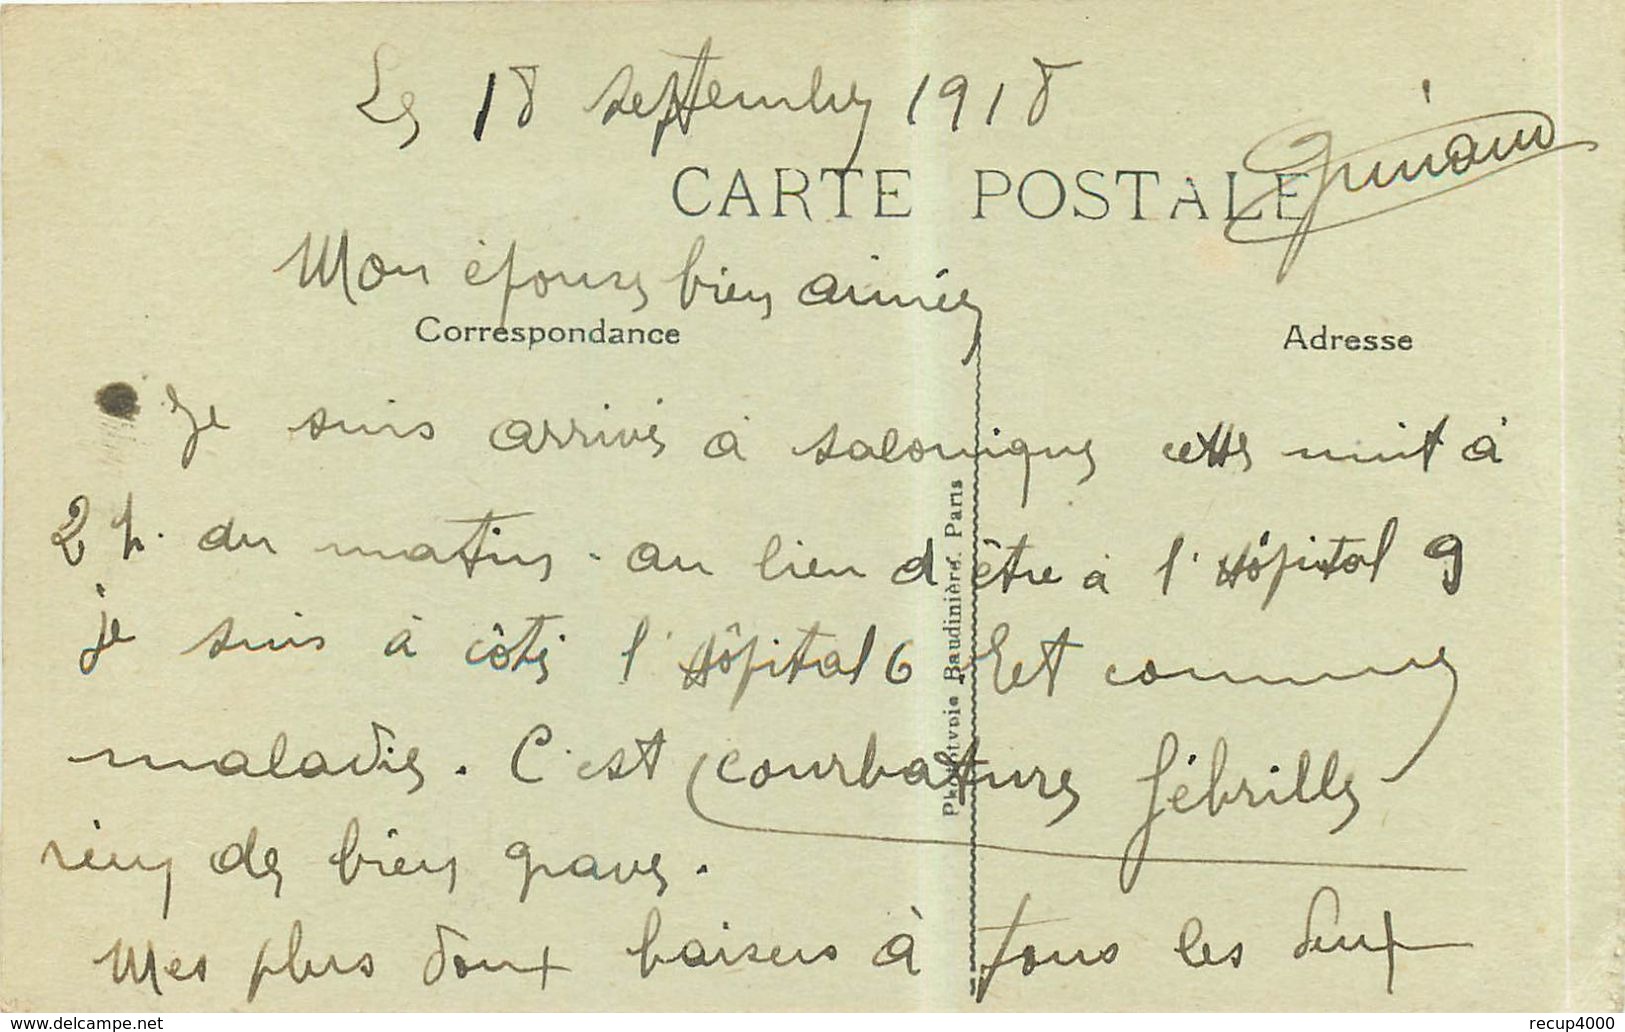 Le 18 septembre 1918
CARTE POSTALE
Mon épouse bien aimée
Correspondance
Adresse
Je suis arrivé à salonique cette nuit à
2 h. du matin. au lieu d'être à l'Hôpital 9
je suis à côté l'Hôpital 6 Et comme
maladie. C'est courbature fébrille
rien de bien grave.
Mes plus doux baisers à tous les deux
Phototypie Baudinière. Paris
recup4000
www.delcampe.net